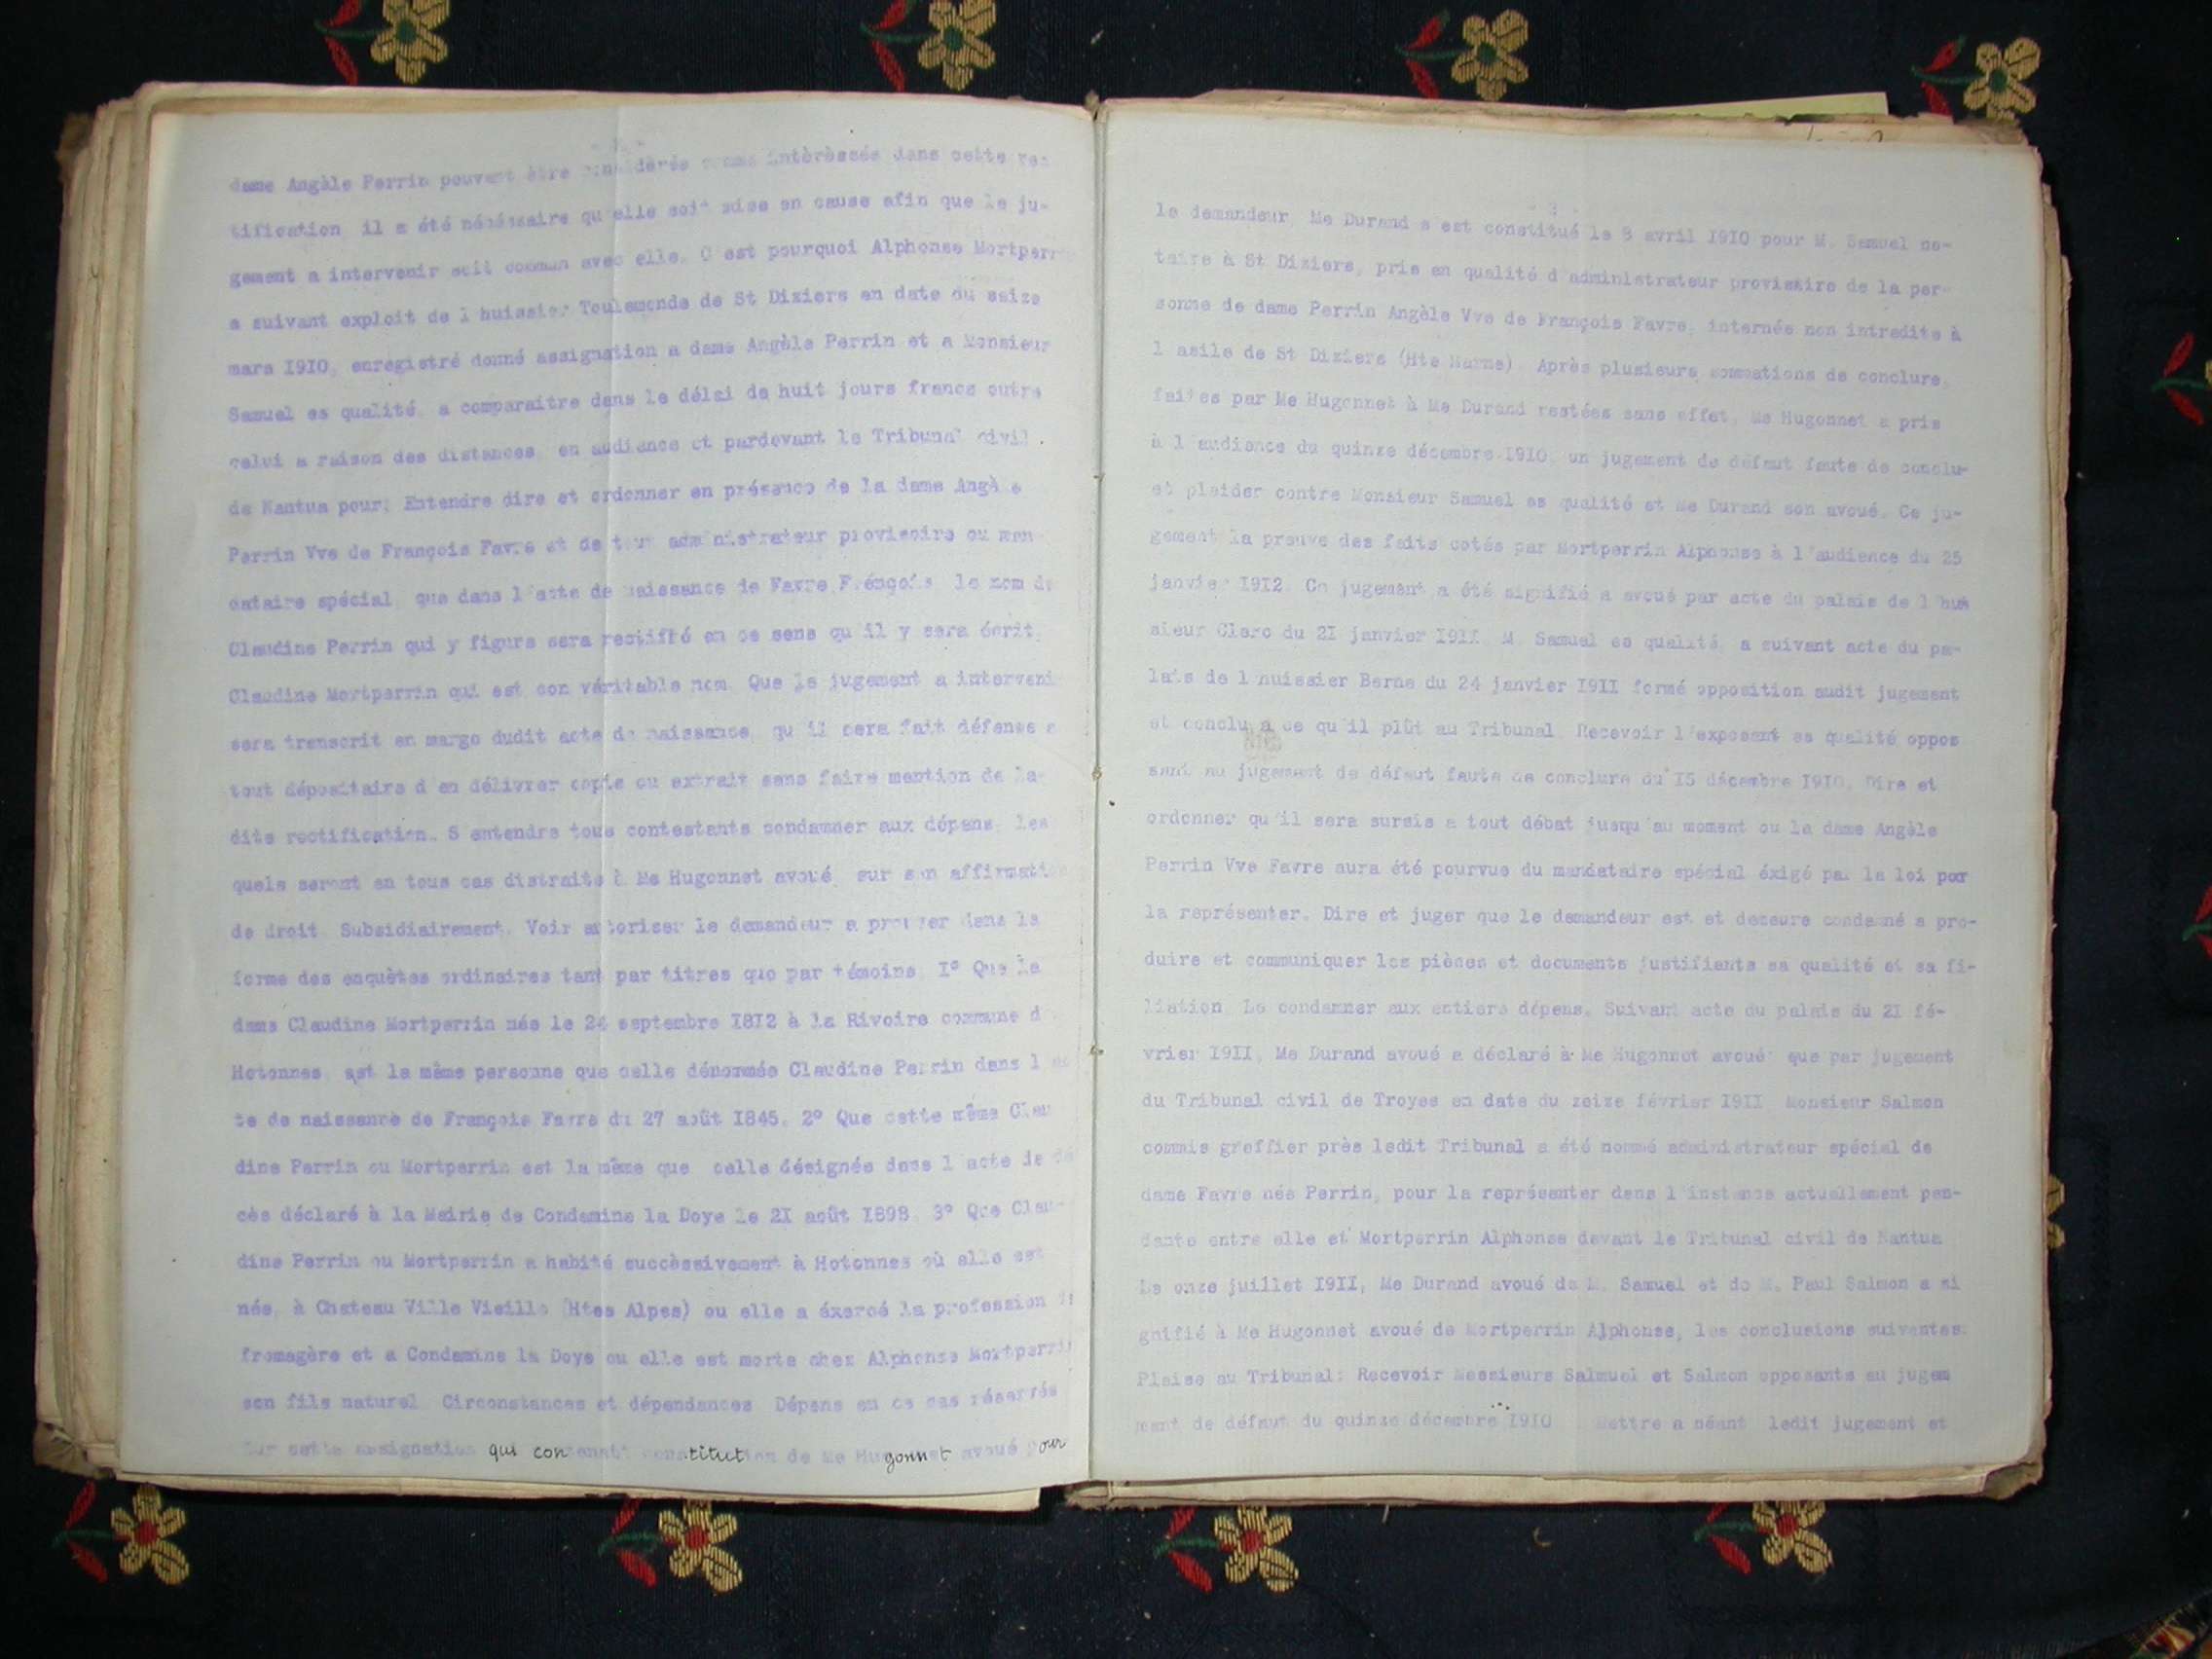 - 2 -
dame Angèle Perrin pouvant être considérés comme intèrèssés dans cette rec
tification il a été nécéssaire qu'elle soit mise en cause afin que le ju-
gement a intervenir soit commun avec elle. C est pourquoi Alphonse Mortperr
a suivant exploit de l huissier Toulemonde de St Diziers en date du seize
mars 1910, enregistré donné assignation a dame Angèle Perrin et a Monsieur
Samuel es qualité, a comparaitre dans le délai de huit jours francs outre
celui a raison des distances, en audience et pardevant le Tribunal civil.
de Nantua pour: Entendre dire et ordonner en présence de la dame Angè e
Perrin Vve de François Favre et de tout administrateur provisoire ou man
dataire spécial, que dans l'acte de naissance de Favre François le nom de
Claudine Perrin qui y figure sera rectifié en ce sens qu'il y sera écrit,
Claudine Mortperrin qui est son véritable nom. Que le jugement a interveni
sera transcrit en marge dudit acte de naissance, qu il sera fait défense a
tout dépositaire d en délivrer copie ou extrait sans faire mention de la-
dite rectification. S entendre tous contestants condamner aux dépens, les
quels seront en tous cas distraits à Me Hugonnet avoué, sur son affirmation
de droit. Subsidiairement. Voir autoriser le demandeur a prouver dans la
forme des enquètes ordinaires tant par titres que par témoins. I° Que la
dame Claudine Mortperrin née le 24 septembre I8I2 à la Rivoire commune d
Hotonnes, est la même personne que celle dénommée Claudine Perrin dans l ac
te de naissance de François Favre du 27 août I845. 2° Que cette même Clau
dine Perrin ou Mortperrin est la même que celle désignée dans l acte de dé
cès déclaré à la Mairie de Condamine la Doye le 2I août I898. 3° Que Clau-
dine Perrin ou Mortperrin a habité succèssivement à Hotonnes où elle est
née, à Chateau Ville Vieille (Htes Alpes) ou elle a éxercé la profession de
fromagère et a Condamine la Doye ou elle est morte chez Alphonse Mortperrin
son fils naturel. Circonstances et dépendances. Dépens en ce cas réservés
Sur cette assignation qui contenait constitution de Me Hugonnet avoué pour
- 3 -
le demandeur, Me Durand s'est constitué le 8 avril I9I0 pour M. Samuel no-
taire à St Diziers, pris en qualité d'administrateur provisoire de la per-
sonne de dame Perrin Angèle Vve de François Favre, internée non intredite à
l asile de St Diziers (Hte Marne). Après plusieurs sommations de conclure,
faites par Me Hugonnet à Me Durand restées sans effet, Me Hugonnet a pris
à l'audience du quinze décembre I9I0, un jugement de défaut faute de conclu-
et plaider contre Monsieur Samuel es qualité et Me Durand son avoué. Ce ju-
gement la preuve des faits cotés par Mortperrin Alphonse à l'audience du 25
janvier I9I2. Ce jugement a été signifié a avoué par acte du palais de l'hui
sieur Clerc du 2I janvier I9II. M. Samuel es qualité, a suivant acte du pa-
lais de l huissier Berne du 24 janvier I9II formé opposition audit jugement
et conclu a ce qu'il plût au Tribunal. Recevoir l'exposant es qualité oppos
sant au jugement de défaut faute de conclure du I5 décembre I9I0. Dire et
ordonner qu'il sera sursis a tout débat jusqu'au moment ou la dame Angèle
Perrin Vve Favre aura été pourvue du mandataire spécial éxigé par la loi pour
la représenter. Dire et juger que le demandeur est et demeure condamné a pro-
duire et communiquer les pièces et documents justifiants sa qualité et sa fi-
liation. Le condamner aux entiers dépens. Suivant acte du palais du 2I fé-
vrier I9II, Me Durand avoué a déclaré à Me Hugonnet avoué que par jugement
du Tribunal civil de Troyes en date du seize février I9II Monsieur Salmon
commis greffier près ledit Tribunal a été nommé administrateur spécial de
dame Favre née Perrin, pour la représenter dans l'instance actuellement pen-
dante entre elle et Mortperrin Alphonse devant le Tribunal civil de Nantua
Le onze juillet I9II, Me Durand avoué de M. Samuel et de M. Paul Salmon a si
gnifié à Me Hugonnet avoué de Mortperrin Alphonse, les conclusions suivantes:
Plaise au Tribunal: Recevoir Messieurs Salmuel et Salmon opposants au jugem
ment de défaut du quinze décembre I9I0 Mettre a néant ledit jugement et